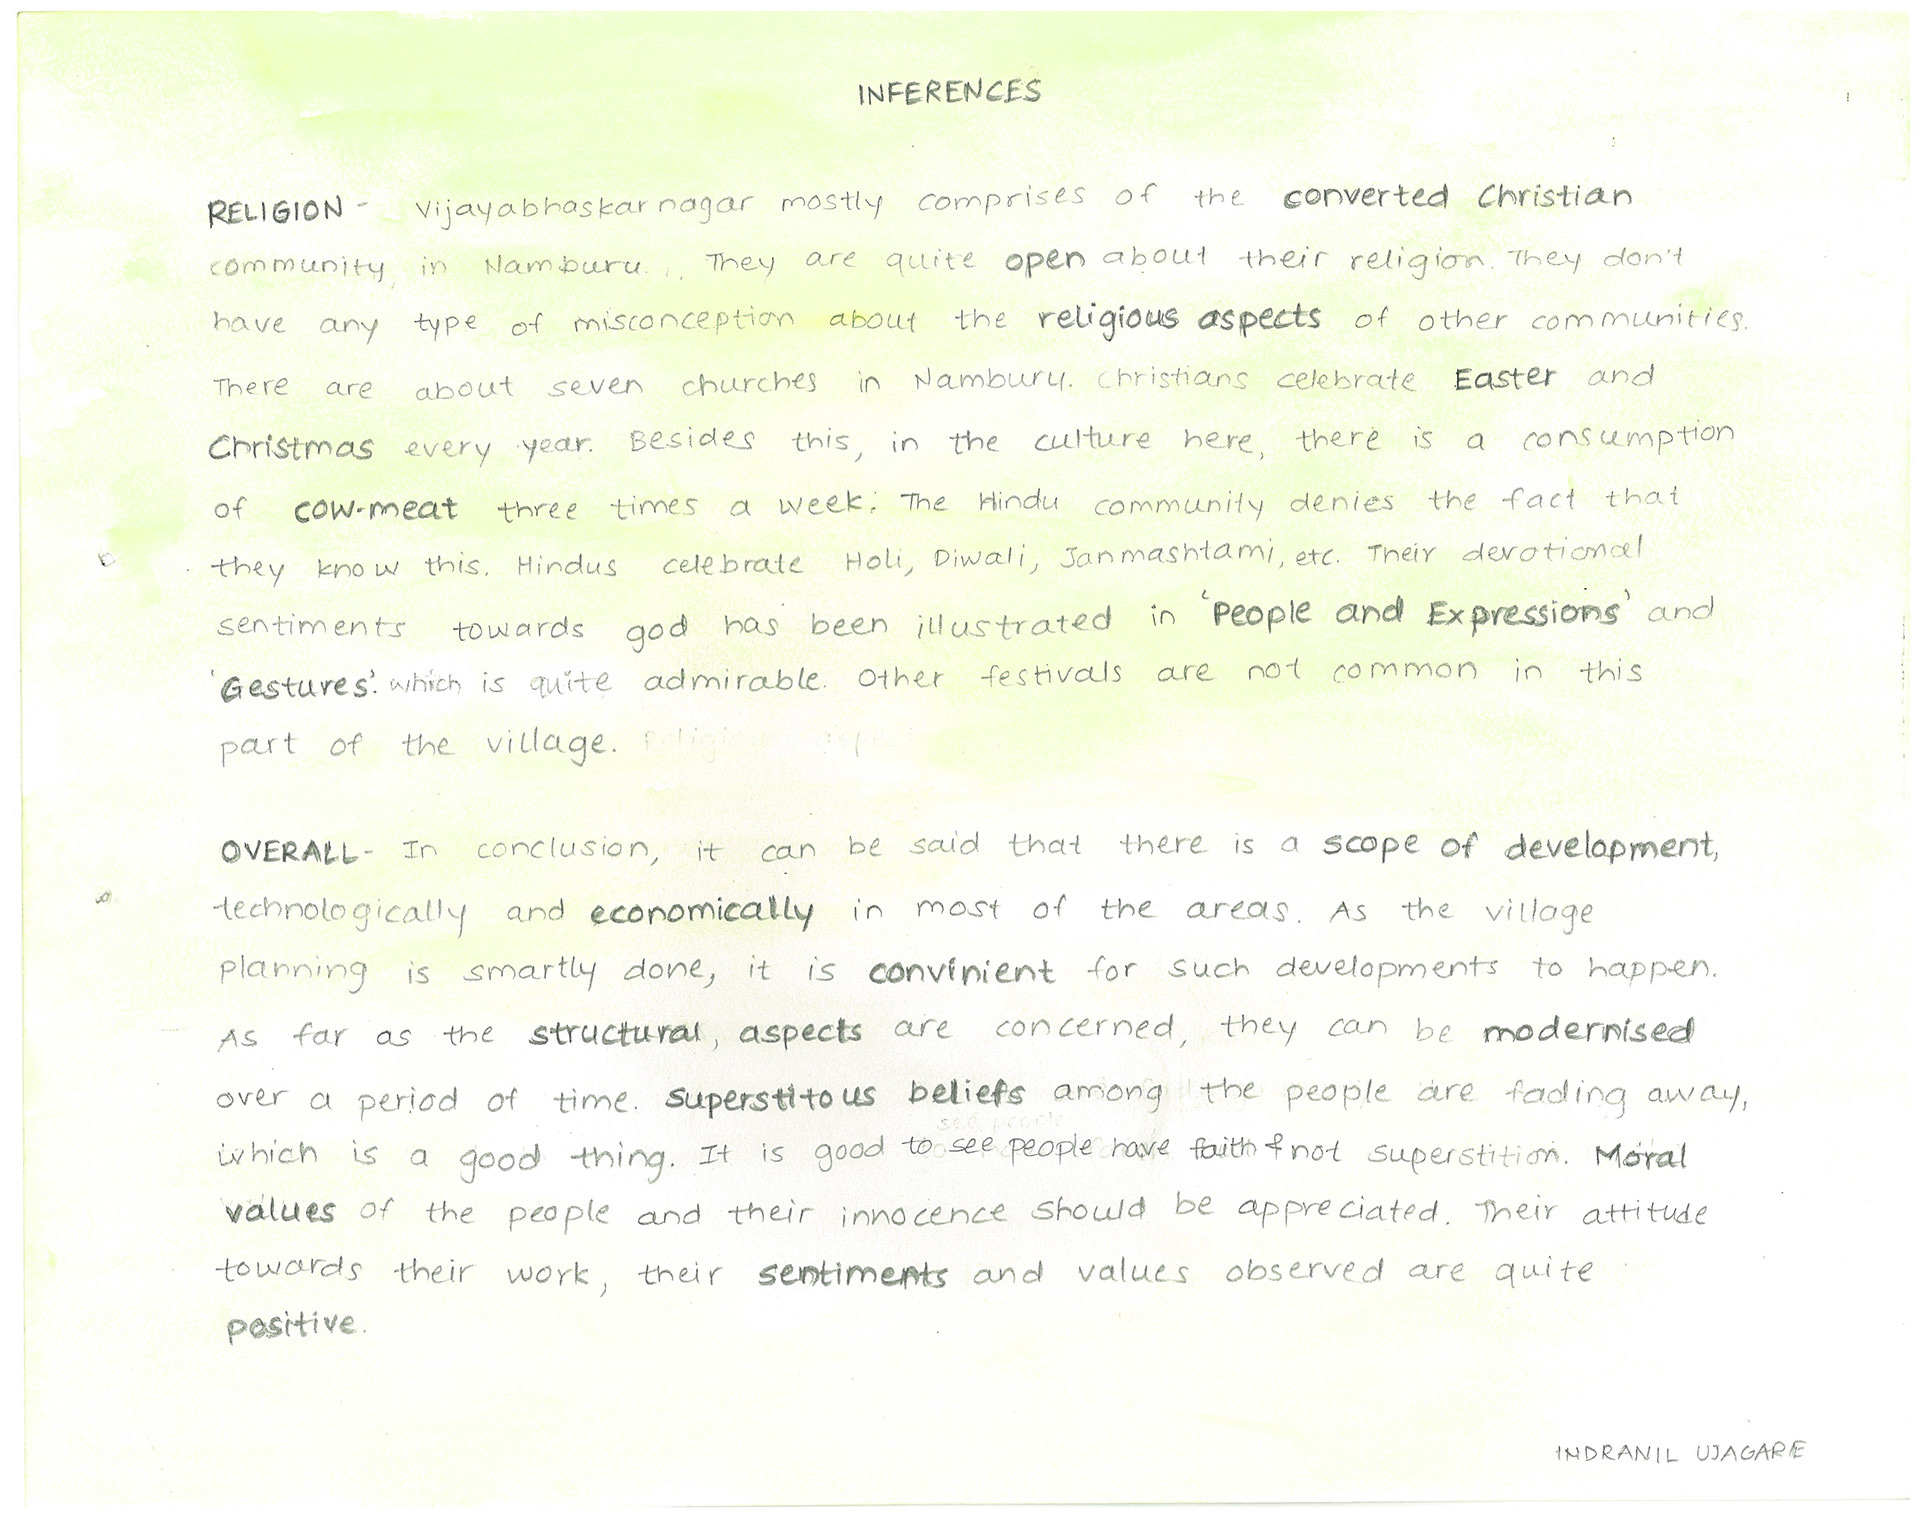 INFERENCES
RELIGION - Vijayabhaskarnagar mostly comprises of the converted Christian
community, in Namburu. They are quite open about their religion. They don't
have any type of misconception about the religious aspects of other communities.
There are about seven churches in Namburu. Christians celebrate Easter and
Christmas every year. Besides this, in the culture here, there is a consumption
of cow-meat three times a week. The Hindu community denies the fact that
they know this. Hindus celebrate Holi, Diwali, Janmashtami, etc. Their devotional
sentiments towards god has been illustrated in 'People and Expressions' and
'Gestures'. which is quite admirable. Other festivals are not common in this
part of the village.
OVERALL- In conclusion, it can be said that there is a scope of development,
technologically and economically in most of the areas. As the village
planning is smartly done, it is convinient for such developments to happen.
As far as the structural, aspects are concerned, they can be modernised
over a period of time. Superstitous beliefs among the people are fading away,
which is a good thing. It is good to see people have faith & not superstition. Moral
values of the people and their innocence should be appreciated. Their attitude
towards their work, their sentiments and values observed are quite
positive.
INDRANIL UJAGARE